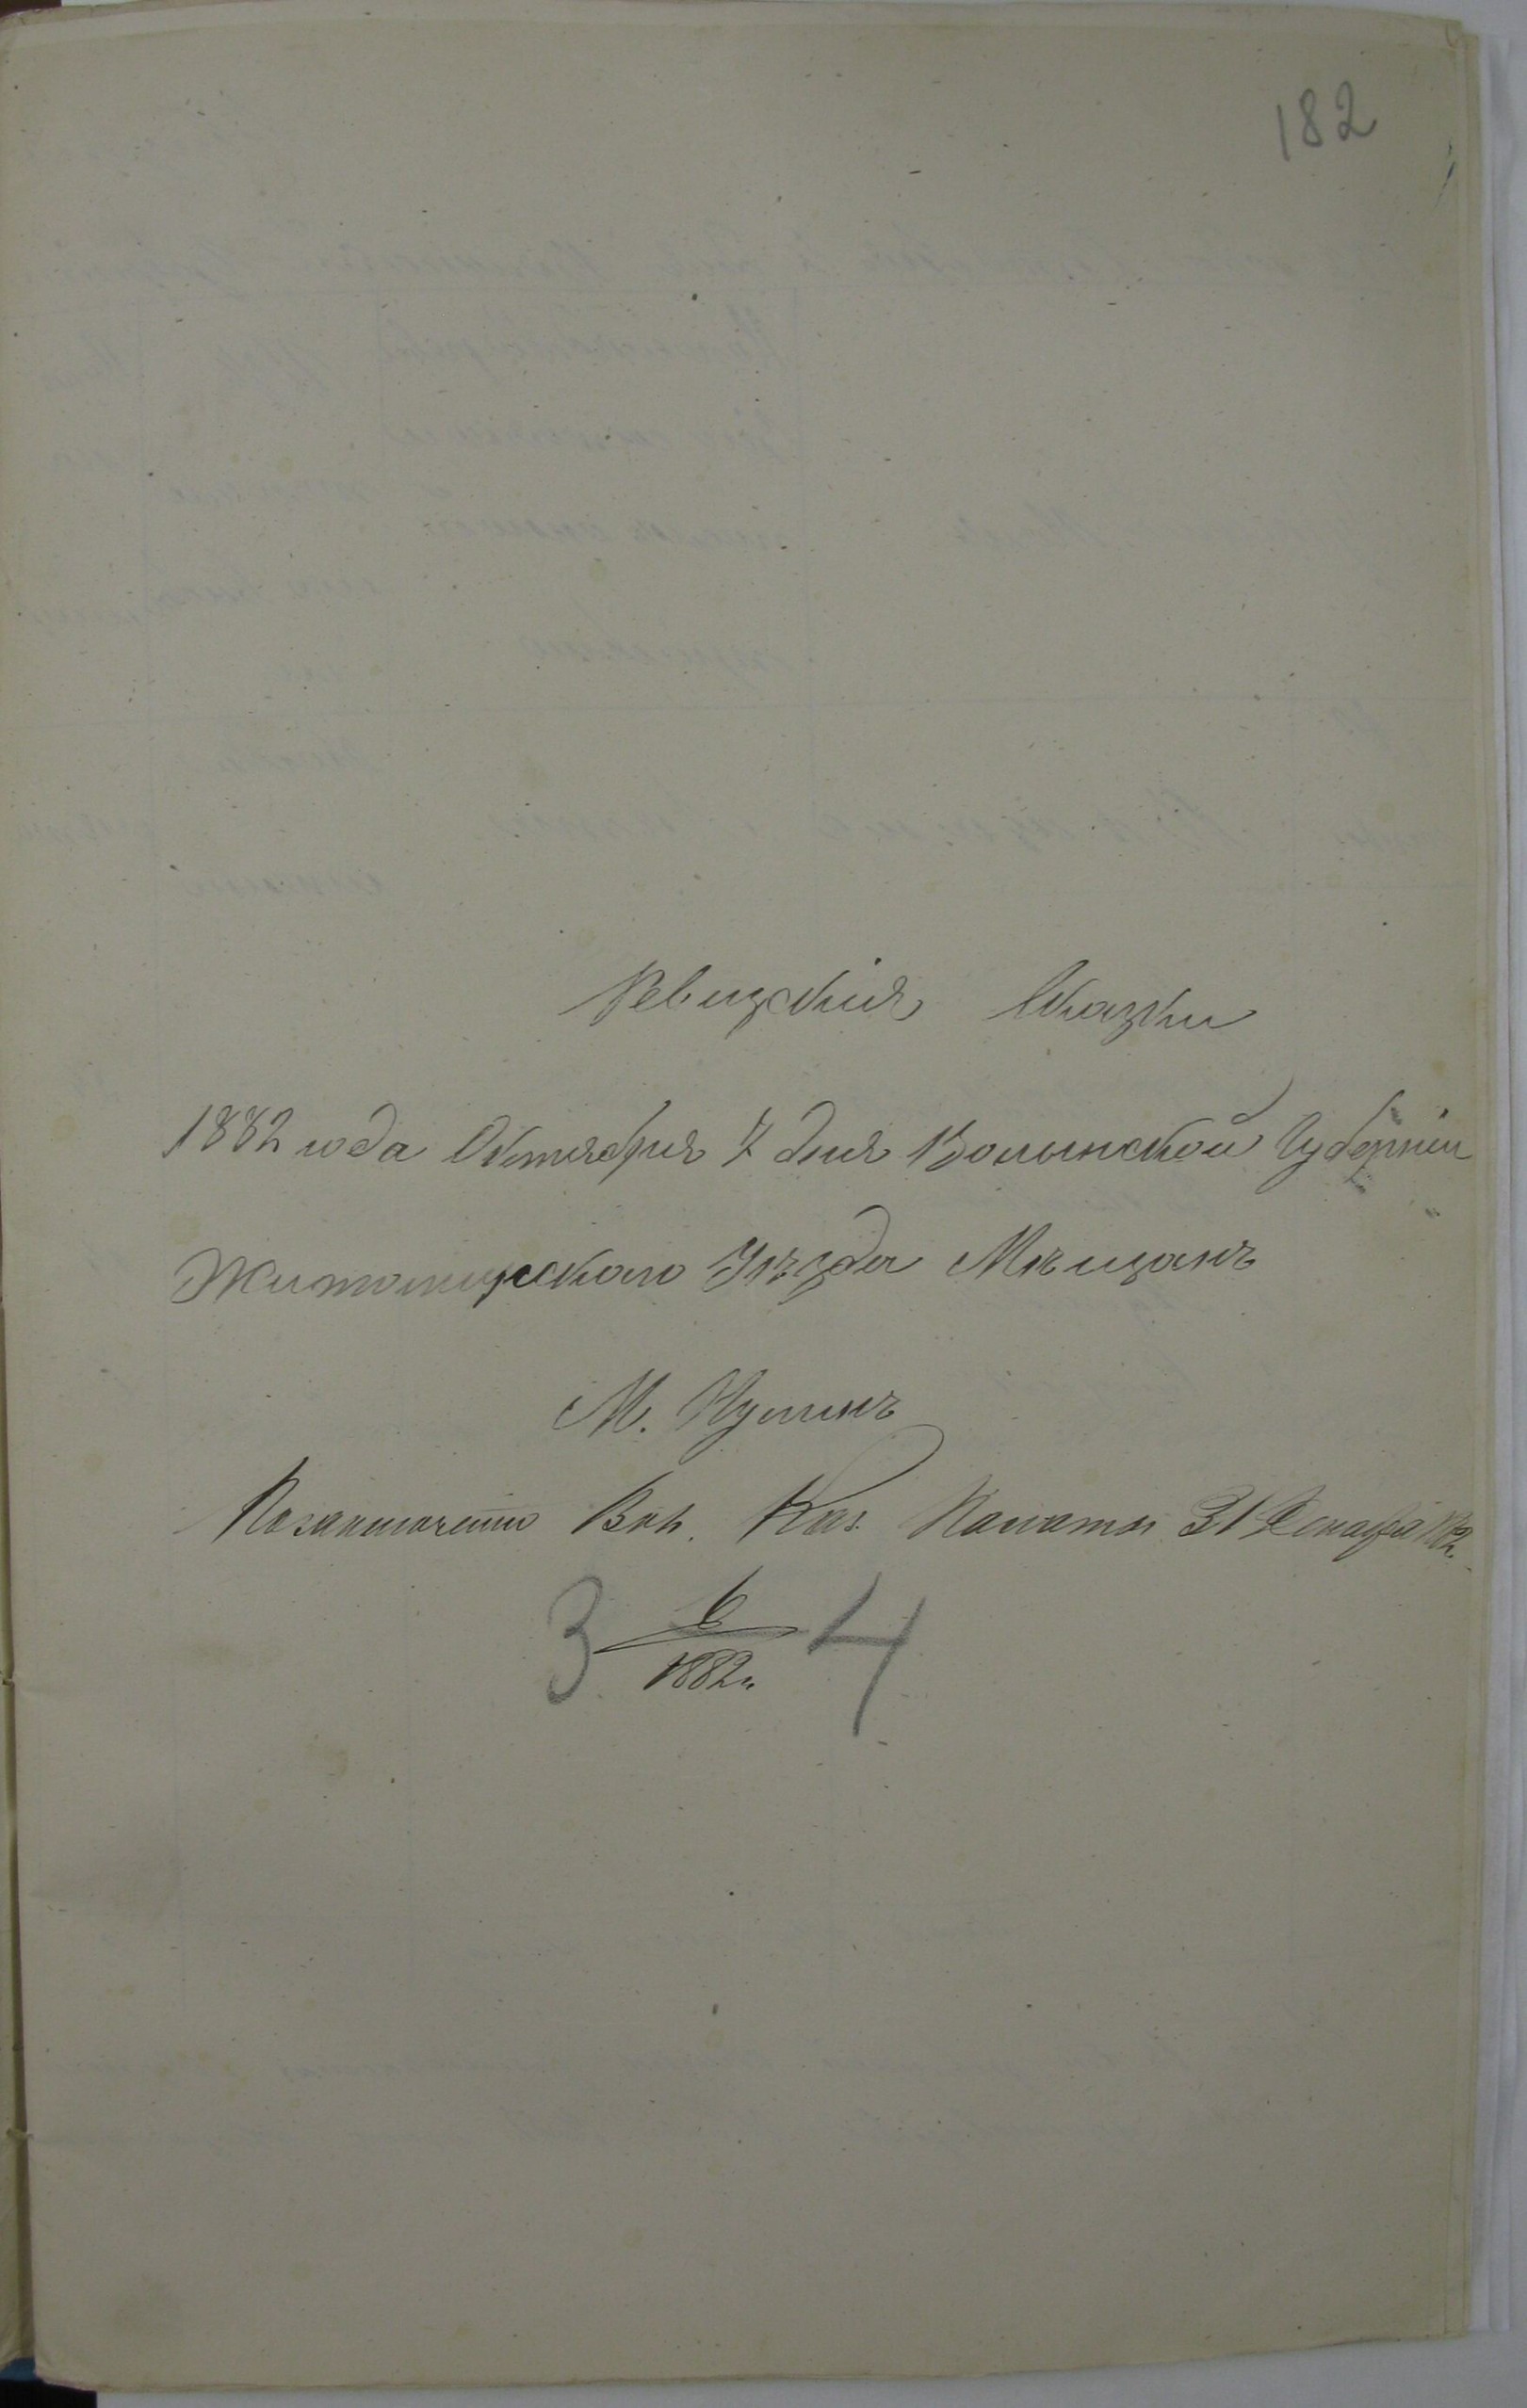 182
Ревизскія Сказки
1882 года Октября 7 дня Волынской Губерніи
Житомирскаго Уѣзда Мѣщанъ
М. Пулинъ
По заключенію Вол. Каз. Палаты 31 Декабря 1882.
3 6/1882г. 4